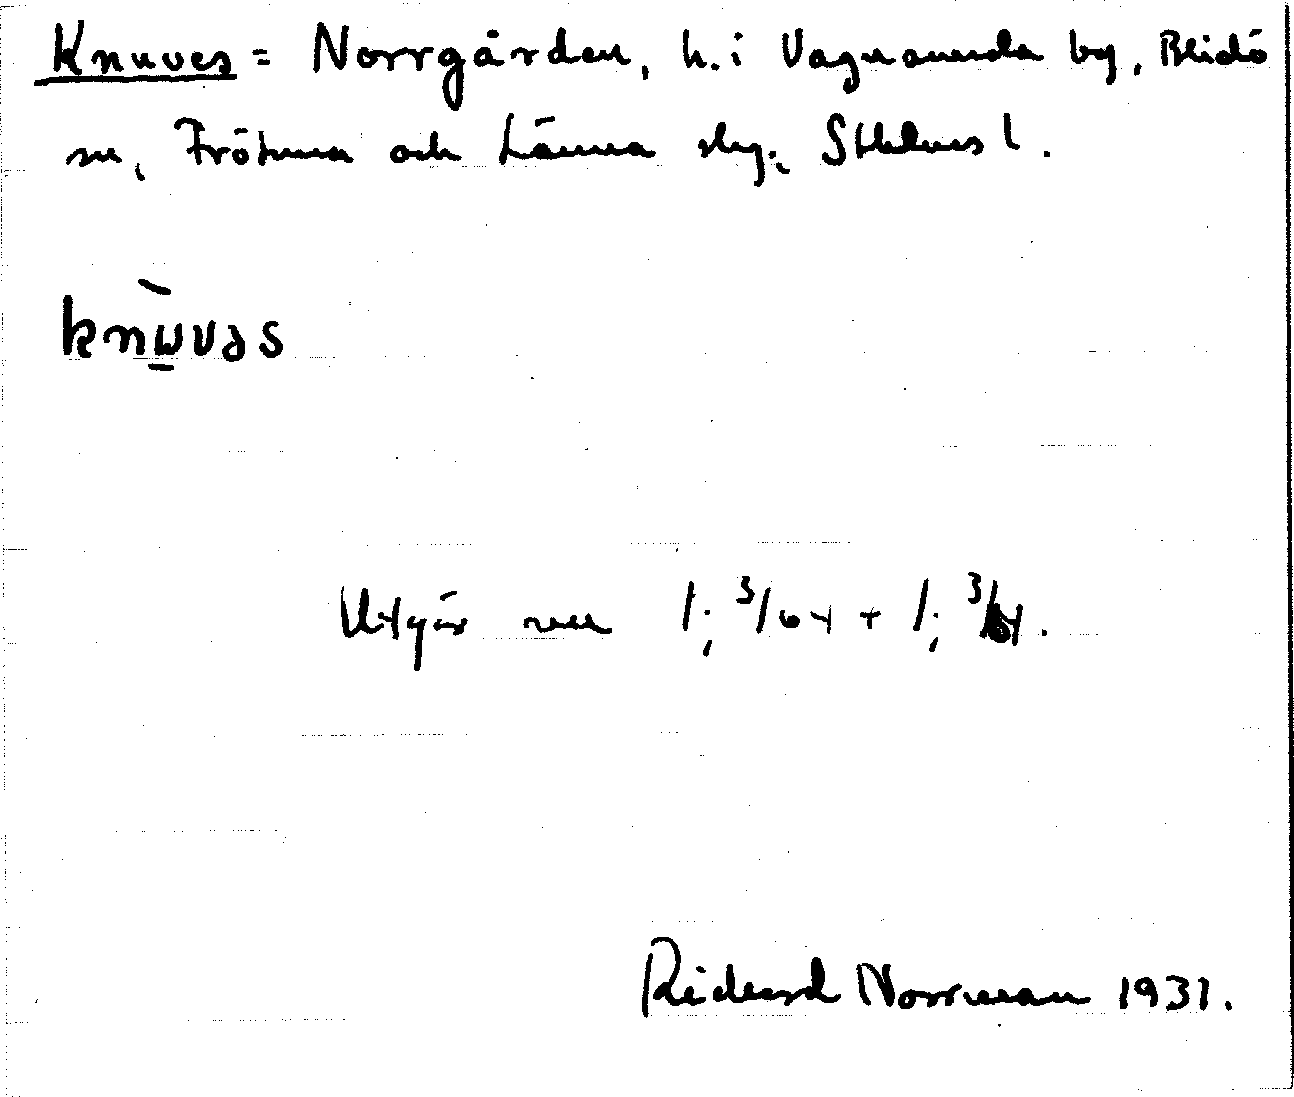 Knuves = Norrgården, h. i Vagnsunda by, Blidö
sn, Frötuna och Länna skg., Sthlms l.
knùvəs
Utgör mtl 1; 3/64 + 1; 3/64.
Rickard Norrman 1931.